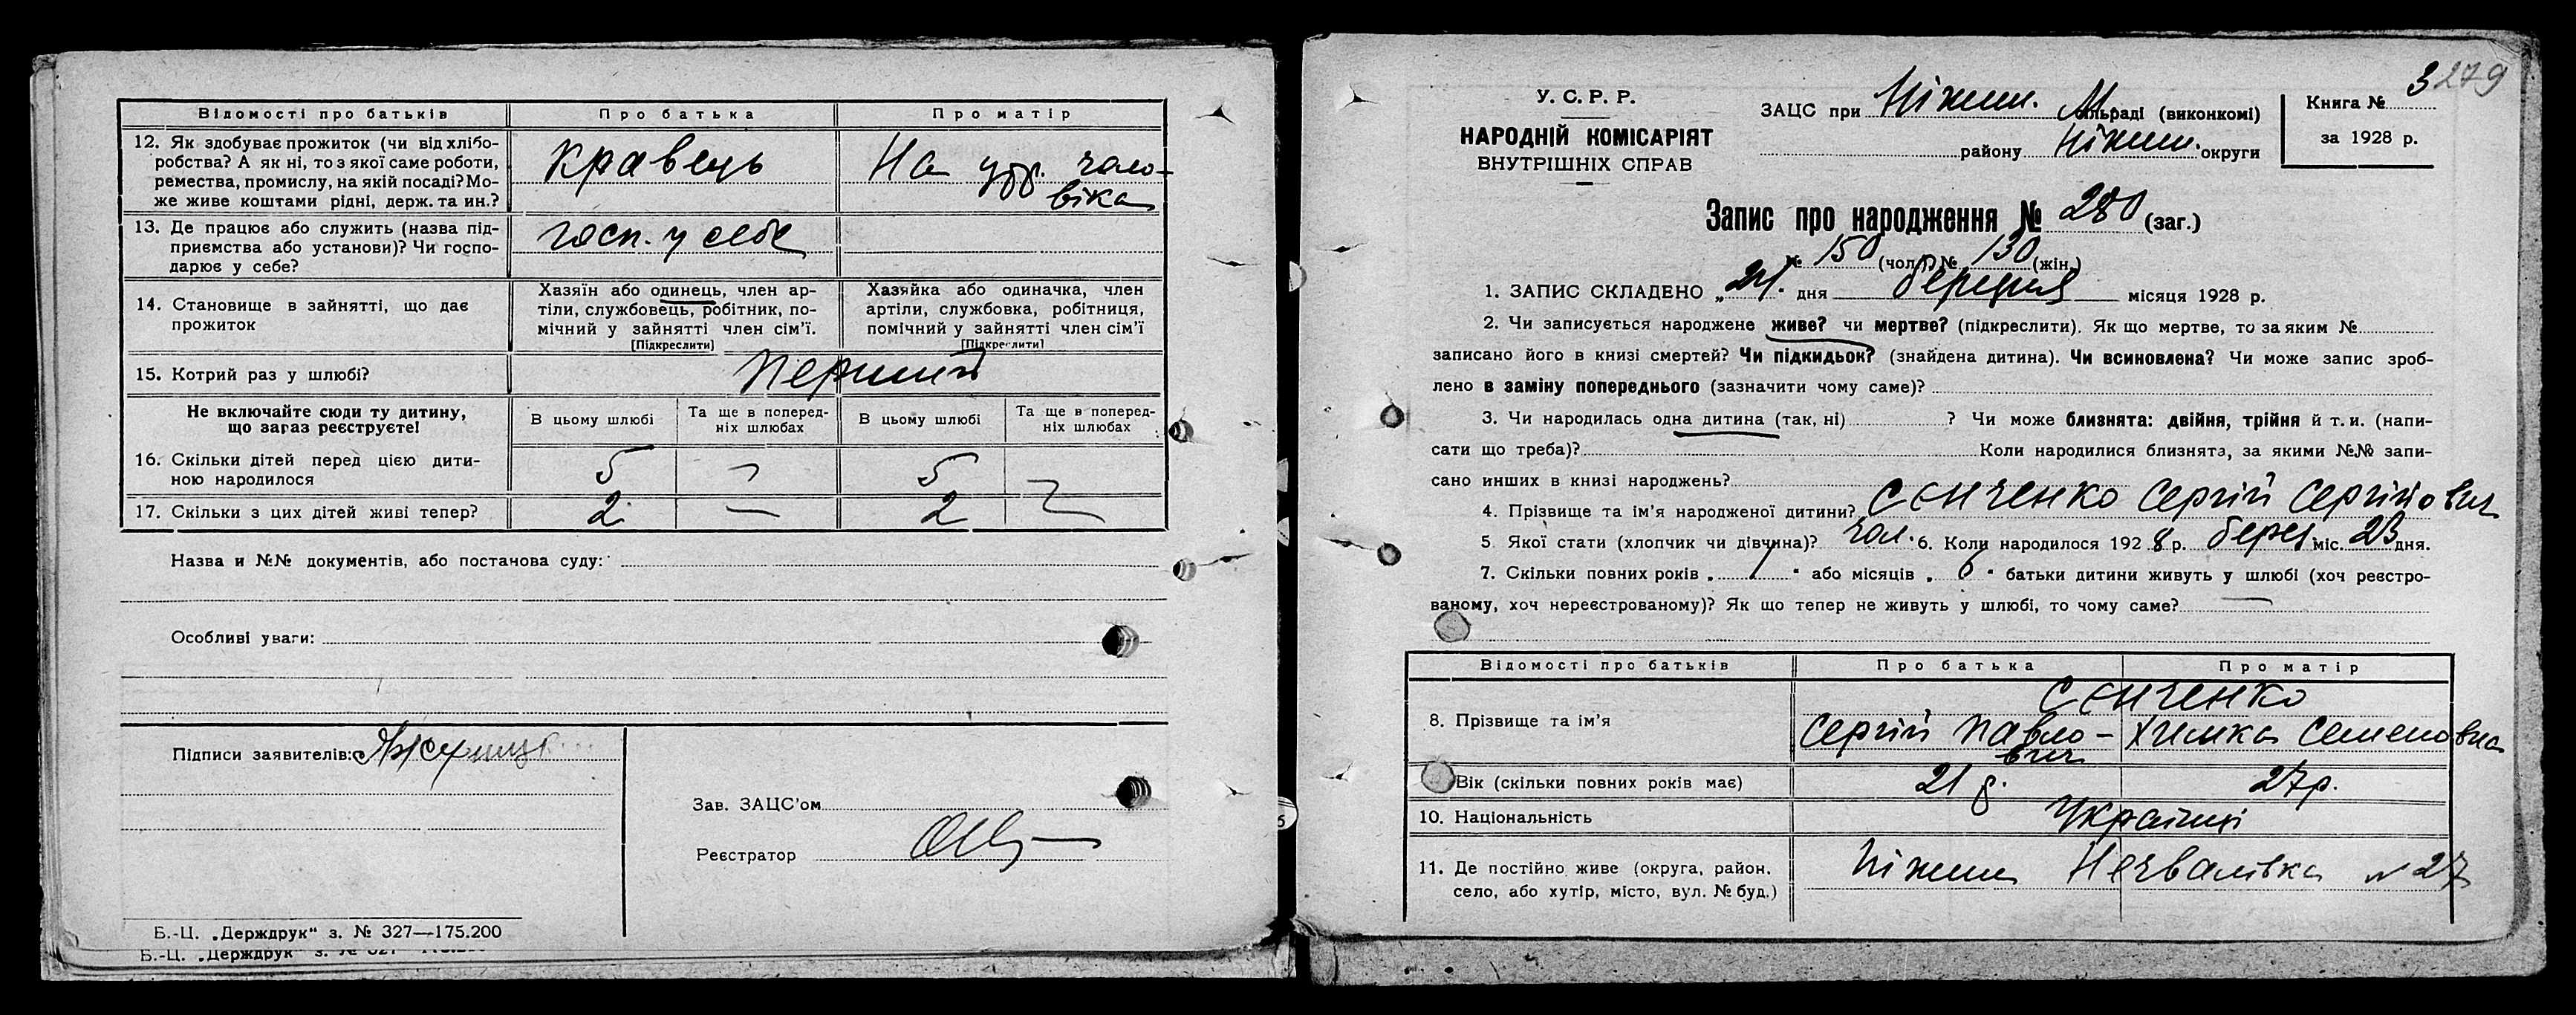 Відомості про батьків Про батька Про матір
12. Як здобуває прожиток (чи від хлібо-
робства? А як ні, то з якої саме роботи,
ремества, промислу, на якій посаді? Мо-
же живе коштами рідні, держ. та ин.?
Кравець
На утр. чоло-
віка
13. Де працює або служить (назва під-
приємства або установи)? Чи госпо-
дарює у себе?
госп. у себе
14. Становище в зайнятті, що дає
прожиток
Хазяїн або одинець, член ар-
тілі, службовець, робітник, по-
мічний у зайнятті член сім'ї.
[Підкреслити]
Хазяйка або одиначка, член
артіли, службовка, робітниця,
помічний у зайнятті член сім'ї
[Підкреслити]
15. Котрий раз у шлюбі? перший
Не включайте сюди ту дитину,
що зараз реєструєте!
В цьому шлюбі
Та ще в поперед-
ніх шлюбах
В цьому шлюбі
Та ще в поперед-
ніх шлюбах
16. Скільки дітей перед цією дити-
ною народилося
5 — 5
17. Скільки з цих дітей живі тепер? 2 — 2 —
Назва и №№ документів, або постанова суду:
Особливі уваги:
Підписи заявителів:
Зав. ЗАЦС'ом
Реєстратор
Б.-Ц. „Держдрук“ з. № 327—175.200
Б.-Ц. „Держдрук“ з. №
У. С. Р. Р.
НАРОДНІЙ КОМІСАРІЯТ
ВНУТРІШНІХ СПРАВ
ЗАЦС при Ніжин. М раді (виконкомі)
району Ніжин. округи
Книга № 3
279
за 1928 р.
Запис про народження № 280 (заг.)
№ 150 (чол.) № 130 (жін.)
1. ЗАПИС СКЛАДЕНО „24. дня березня місяця 1928 р.
2. Чи записується народжене живе? чи мертве? (підкреслити). Як що мертве, то за яким №
записано його в книзі смертей? Чи підкидьок? (знайдена дитина). Чи всиновлена? Чи може запис зроб-
лено в заміну попереднього (зазначити чому саме)?
3. Чи народилась одна дитина (так, ні) ? Чи може близнята: двійня, трійня й т. и. (напи-
сати що треба)? Коли народилися близнята, за якими №№ запи-
сано инших в книзі народжень?
4. Прізвище та ім'я народженої дитини? Сєнченко Сергій Сергійович
5 Якої стати (хлопчик чи дівчина)? чол. 6. Коли народилося 1928 р. берез. міс. 23 дня.
7. Скільки повних років „ 7 “ або місяців „ 6 “ батьки дитини живуть у шлюбі (хоч реєстро-
ваному, хоч нереєстрованому)? Як що тепер не живуть у шлюбі, то чому саме? —
Відомості про батьків Про батька Про матір
8. Прізвище та ім'я
Сєнченко
Сергій Павло-
вич
Химка Семеновна
Вік (скільки повних років має) 21 р. 27 р.
10. Національність Українці
11. Де постійно живе (округа, район,
село, або хутір, місто, вул. № буд.)
Ніжин Нечваловка № 27